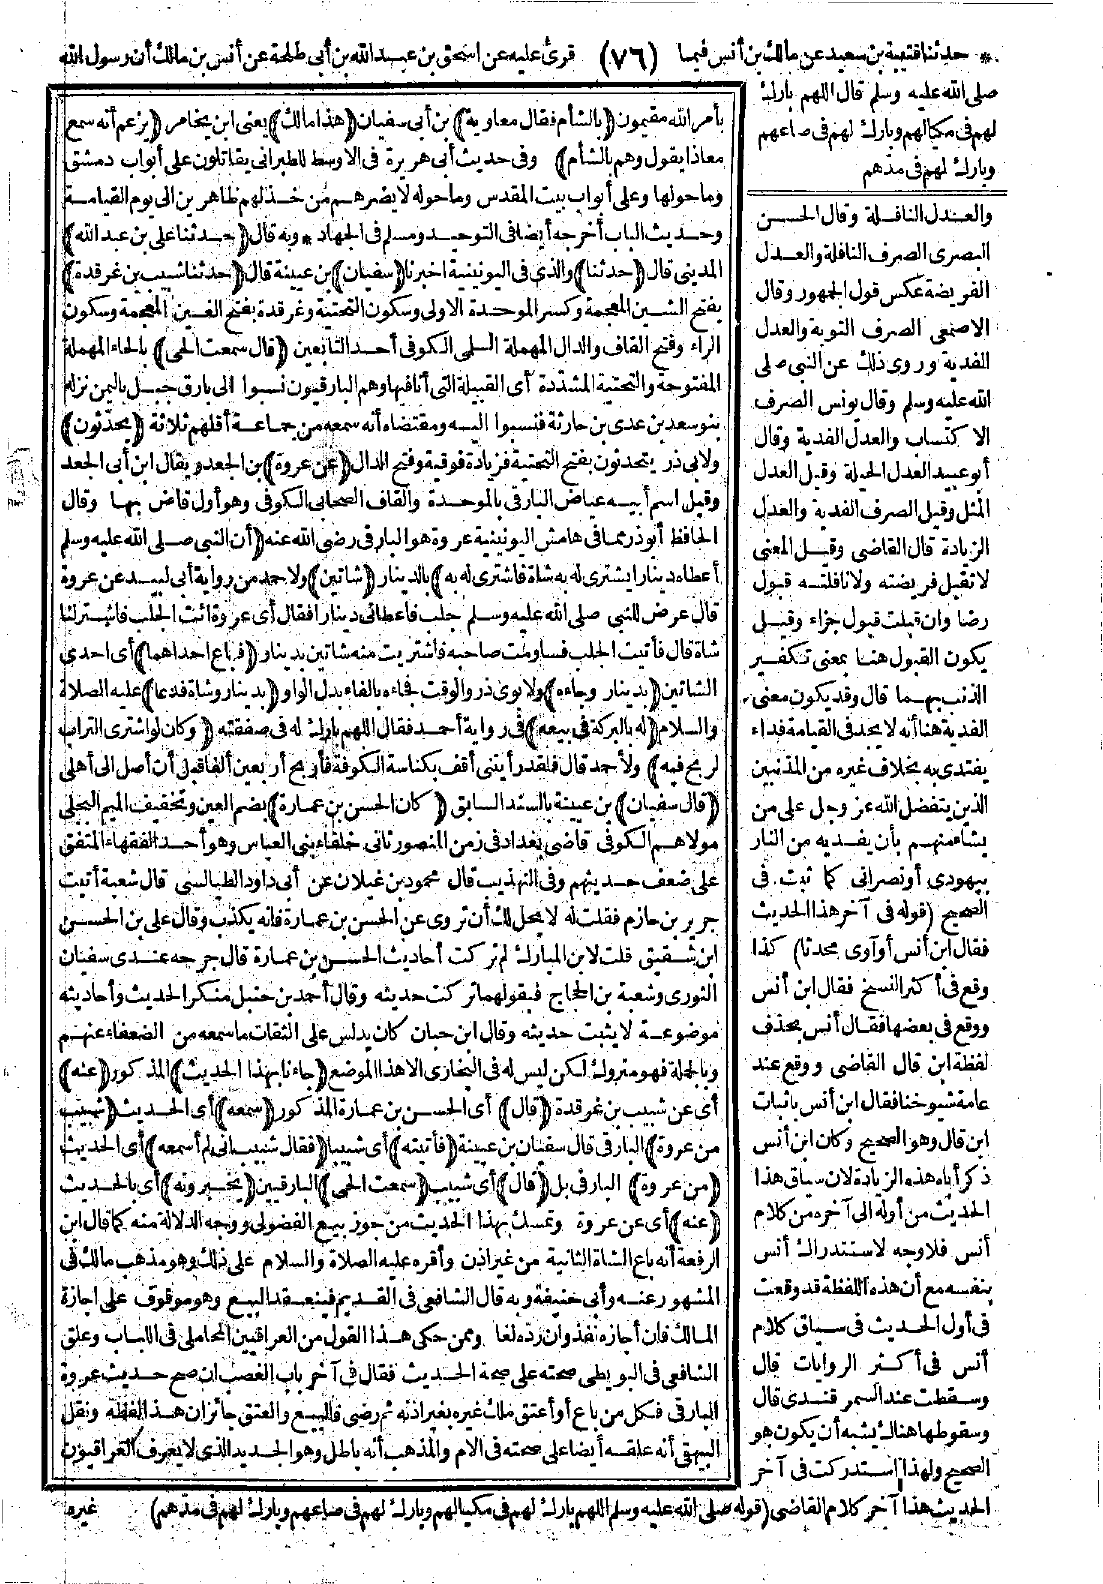 * حدثنا قتيبة بن سعيد عن مالك بن أنس فيما (٧٦) قرئ عليه عن اسحق بن عبد الله بن أبي طلحة عن أنس بن مالك أن رسول الله
صلى الله عليه وسلم قال اللهم بارك
لهم في مكيالهم وبارك لهم في صاعهم
وبارك لهم في مدّهم
والعدل النافلة وقال الحسن
البصرى الصرف النافلة والعدل
الفريضة عكس قول الجمهور وقال
الاصمعى الصرف التوبة والعدل
الفدية وروى ذلك عن النبي صلى
الله عليه وسلم وقال يونس الصرف
الاكتساب والعدل الفدية وقال
أبو عبيد العدل الحيلة وقيل العدل
المثل وقيل الصرف الفدية والعدل
الزيادة قال القاضي وقيل المعنى
لا تقبل فريضته ولا نافلته قبول
رضا وان قبلت قبول جزاء وقيل
يكون القبول هنا بمعنى تكفير
الذنب بهما قال وقد يكون معنى
الفدية هنا أنه لا يجد في القيامة فداء
يفتدى به بخلاف غيره من المذنبين
الذين يتفضل الله عز وجل على من
يشاء منهم بأن يفديه من النار
بيهودى أو نصرانى كما ثبت في
الصحيح (قوله في آخر هذا الحديث
فقال ابن أنس أو آوى محدثا) كذا
وقع في أكثر النسخ فقال ابن أنس
ووقع في بعضها فقال أنس بحذف
لفظة ابن قال القاضي ووقع عند
عامة شيوخنا فقال ابن أنس باثبات
ابن قال وهو الصحيح وكان ابن أنس
ذكر أباه هذه الزيادة لان سياق هذا
الحديث من أوله الى آخره من كلام
أنس فلا وجه لاستدراك أنس
بنفسه مع أن هذه اللفظة قد وقعت
في أول الحديث في سياق كلام
أنس في أكثر الروايات قال
وسقطت عند السمرقندى قال
وسقوطها هناك يشبه أن يكون هو
الصحيح ولهذا استدركت في آخر
الحديث هذا آخر كلام القاضي (قوله صلى الله عليه وسلم اللهم بارك لهم في مكيالهم وبارك لهم في صاعهم وبارك لهم في مدّهم) غيره
بأمر الله مقيمون (بالشأم فقال معاوية) بن أبي سفيان (هذا مالك) يعنى ابن يخامر (يزعم أنه سمع
معاذا يقول وهم بالشأم) وفي حديث أبي هريرة في الاوسط للطبرانى يقاتلون على أبواب دمشق
وما حولها وعلى أبواب بيت المقدس وما حوله لا يضرهم من خذلهم ظاهرين الى يوم القيامة
وحديث الباب أخرجه أيضا في التوحيد ومسلم في الجهاد * وبه قال (حدثنا على بن عبد الله)
المدينى قال (حدثنا) والذى في اليونينية اخبرنا (سفيان) بن عيينة قال (حدثنا شبيب بن غرقدة)
بفتح الشين المعجمة وكسر الموحدة الاولى وسكون التحتية وغرقدة بفتح الغين المعجمة وسكون
الراء وفتح القاف والدال المهملة السلمى الكوفى أحد التابعين (قال سمعت الحى) بالحاء المهملة
المفتوحة والتحتية المشدّدة أى القبيلة التى أنا فيها وهم البارقيون نسبوا الى بارق جبل باليمن نزله
بنو سعد بن عدى بن حارثة فنسبوا اليه ومقتضاه أنه سمعه من جماعة أقلهم ثلاثة (يحدّثون)
ولابى ذر يتحدثون بفتح التحتية فزيادة فوقية وفتح الدال (عن عروة) بن الجعد ويقال ابن أبى الجعد
وقيل اسم أبيه عياض البارقى بالموحدة والقاف الصحابى الكوفى وهو أول قاض بها وقال
الحافظ أبو ذر مما في هامش اليونينية عروة هو البارقى رضى الله عنه (أن النبي صلى الله عليه وسلم
أعطاه دينارا يشترى له به شاة فاشترى له به) بالدينار (شاتين) ولاحمد من رواية أبى لبيد عن عروة
قال عرض للنبي صلى الله عليه وسلم جلب فاعطانى دينارا فقال أى عروة ائت الجلب فاشتر لنا
شاة قال فأتيت الجلب فساومت صاحبه فاشتريت منه شاتين بدينار (فباع احداهما) أى احدى
الشاتين (بدينار وجاءه) ولابوى ذر والوقت فجاءه بالفاء بدل الواو (بدينار وشاة فدعا) عليه الصلاة
والسلام (له بالبركة في بيعه) في رواية أحمد فقال اللهم بارك له في صفقته (وكان لو اشترى التراب
لربح فيه) ولاحمد قال فلقد رأيتنى أقف بكناسة الكوفة فأربح أربعين ألفا قبل أن أصل الى أهلى
(قال سفيان) بن عيينة بالسند السابق (كان الحسن بن عمارة) بضم العين وتخفيف الميم البجلى
مولاهم الكوفى قاضى بغداد في زمن المنصور ثانى خلفاء بنى العباس وهو أحد الفقهاء المتفق
على ضعف حديثهم وفى التهذيب قال محمود بن غيلان عن أبى داود الطيالسى قال شعبة أتيت
جرير بن حازم فقلت له لا يحل لك أن تروى عن الحسن بن عمارة فانه يكذب وقال على بن الحسن
ابن شقيق قلت لابن المبارك لم تركت أحاديث الحسن بن عمارة قال جرحه عندى سفيان
الثورى وشعبة بن الحجاج فبقولهما تركت حديثه وقال أحمد بن حنبل منكر الحديث وأحاديثه
موضوعة لا يثبت حديثه وقال ابن حبان كان يدلس على الثقات ما سمعه من الضعفاء عنهم
وبالجملة فهو متروك لكن ليس له في البخارى الا هذا الموضع (جاءنا بهذا الحديث) المذكور (عنه)
أى عن شبيب بن غرقدة (قال) أى الحسن بن عمارة المذكور (سمعه) أى الحديث (شبيب
من عروة) البارقى قال سفيان بن عيينة (فأتيته) أى شبيبا (فقال شبيب انى لم أسمعه) أى الحديث
(من عروة) البارقى بل (قال) أى شبيب (سمعت الحى) البارقيين (يخبرونه) أى بالحديث
(عنه) أى عن عروة وتمسك بهذا الحديث من جوز بيع الفضولى ووجه الدلالة منه كما قال ابن
الرفعة أنه باع الشاة الثانية من غير اذن وأقره عليه الصلاة والسلام على ذلك وهو مذهب مالك في
المشهور عنه وأبى حنيفة وبه قال الشافعى في القديم فينعقد البيع وهو موقوف على اجازة
المالك فان أجازه نفذ وان رده لغا وممن حكى هذا القول من العراقيين المحاملى في اللباب وعلق
الشافعى في البويطى صحته على صحة الحديث فقال في آخر باب الغصب ان صح حديث عروة
البارقى فكل من باع أو أعتق ملك غيره بغير اذنه ثم رضى فالبيع والعتق جائزان هذا لفظه ونقل
البيهقى أنه علقه أيضا على صحته في الام والمذهب أنه باطل وهو الجديد الذى لا يعرف العراقيون